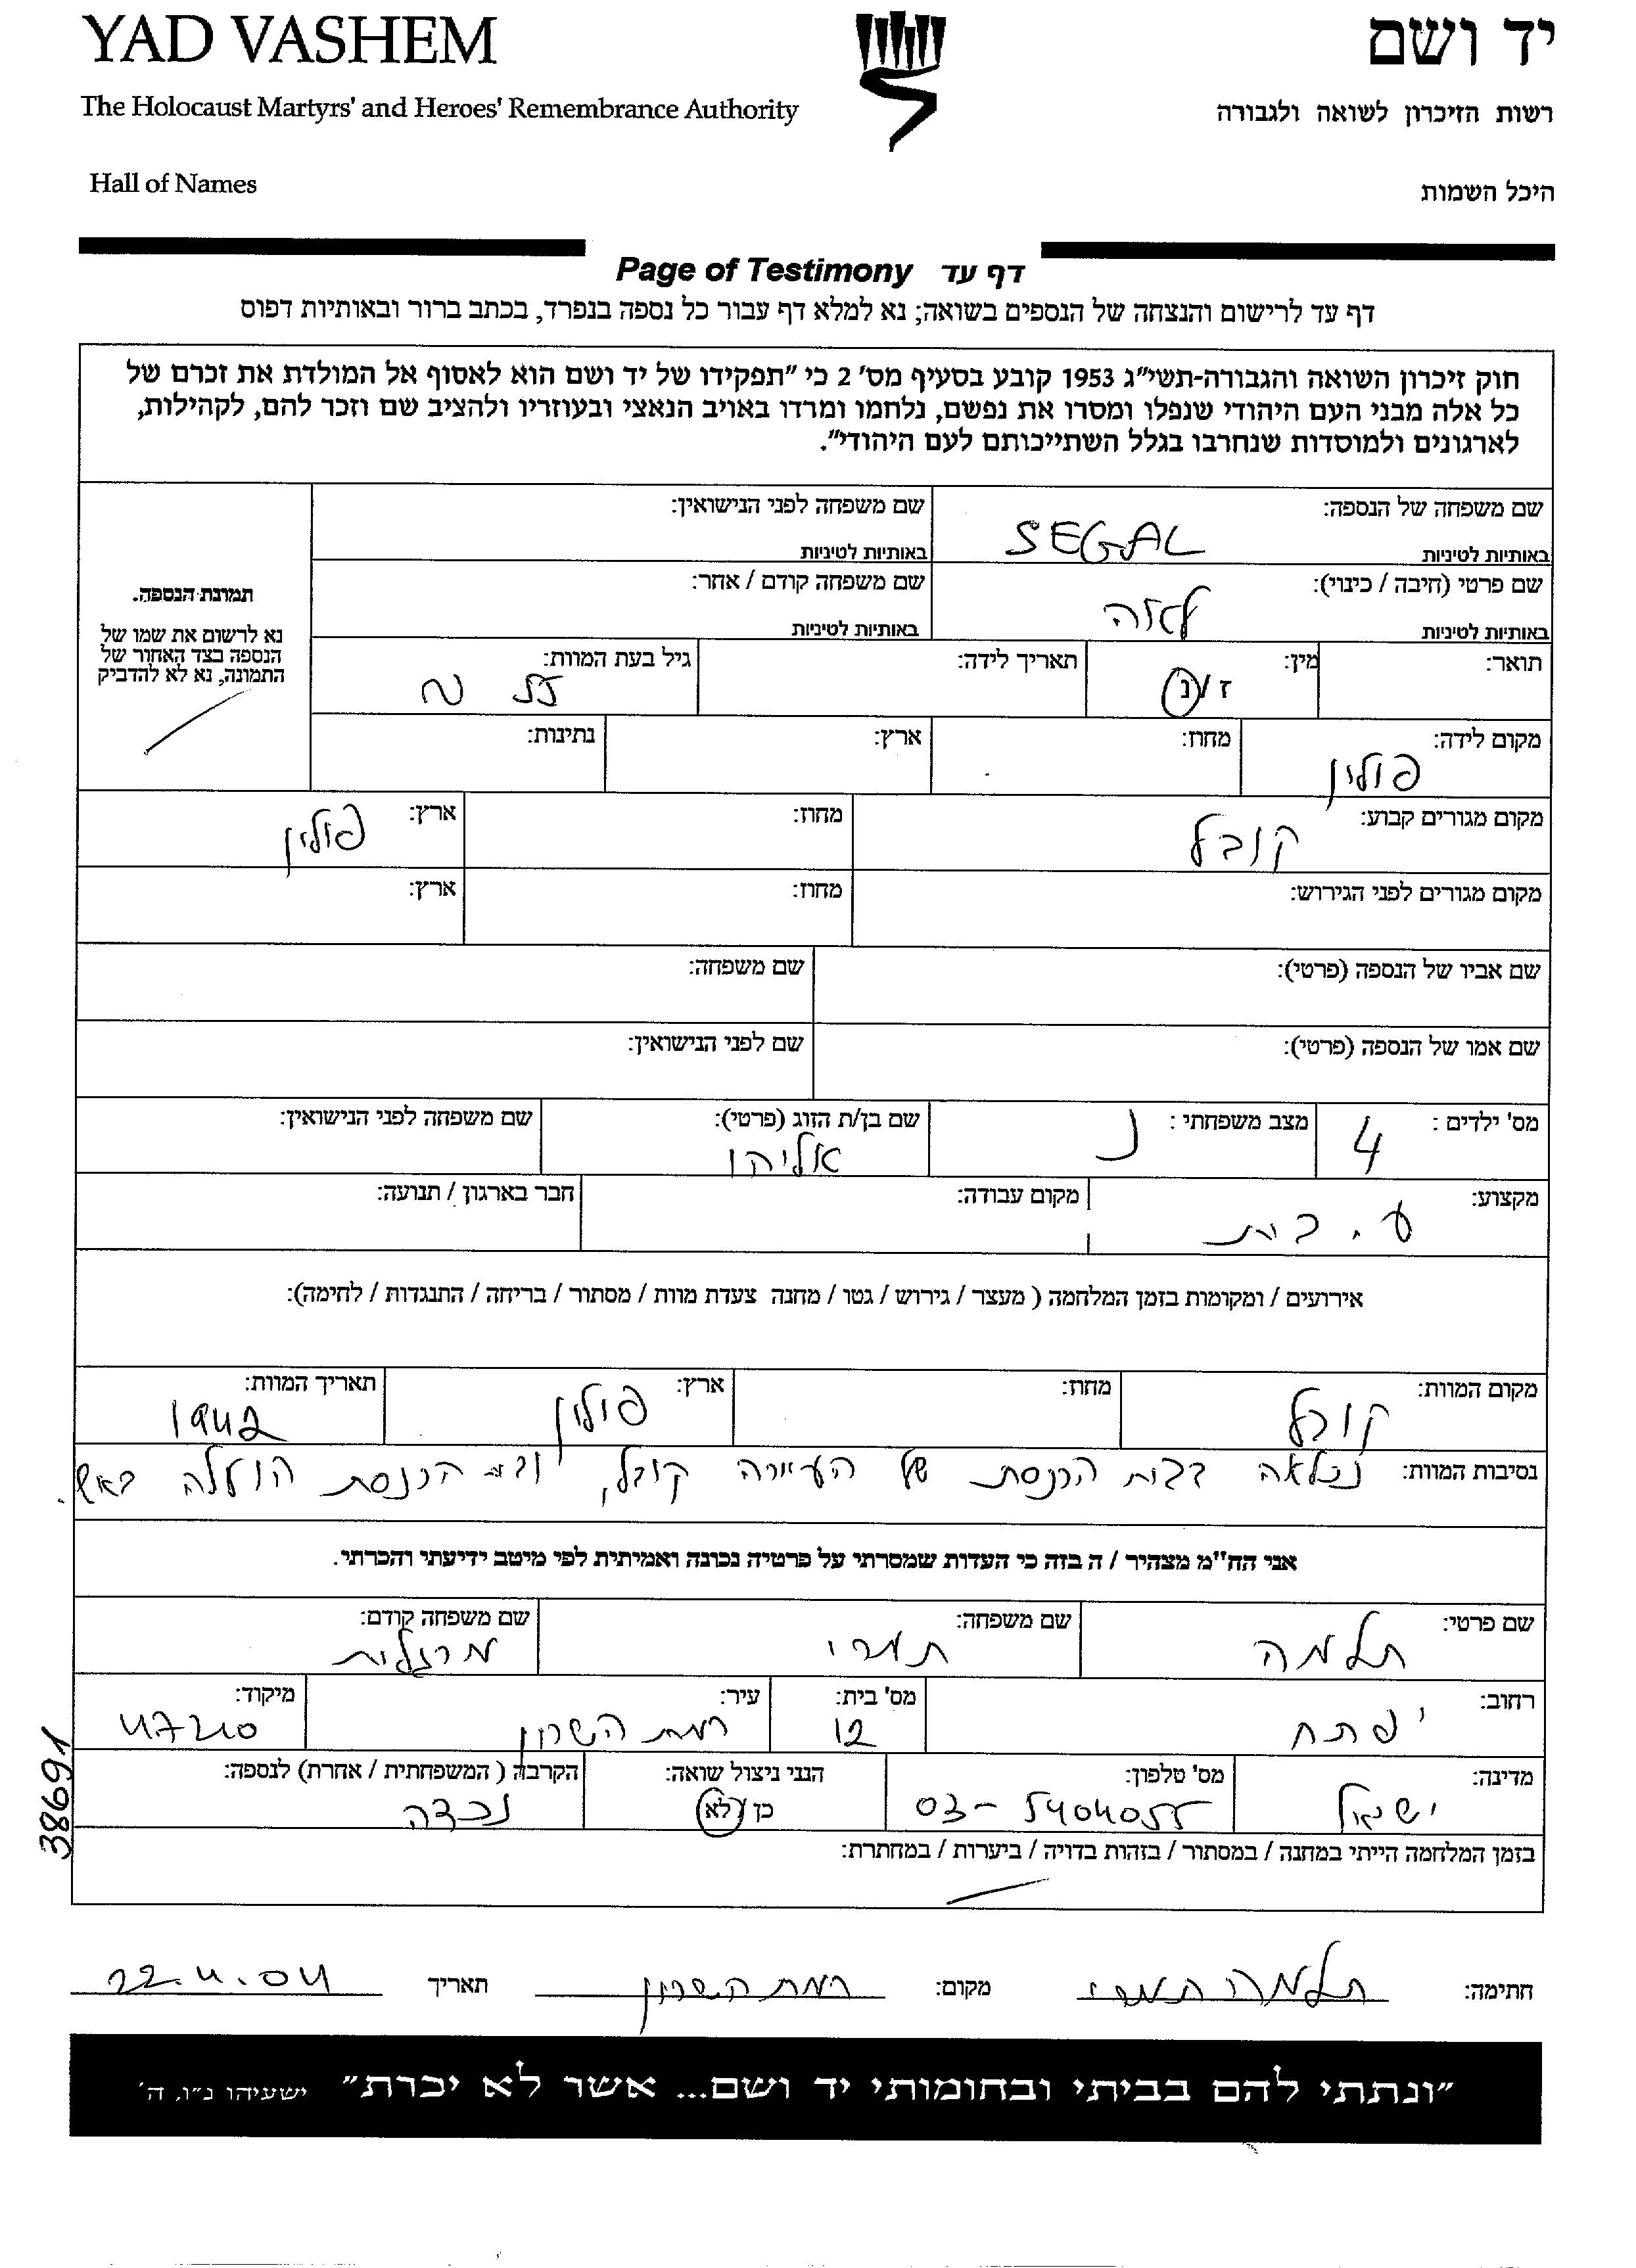 YAD VASHEM
יד ושם
The Holocaust Martyrs' and Heroes' Remembrance Authority
רשות הזיכרון לשואה ולגבורה
Hall of Names
היכל השמות
Page of Testimony דף עד
דף עד לרישום והנצחה של הנספים בשואה; נא למלא דף עבור כל נספה בנפרד, בכתב ברור ובאותיות דפוס
חוק זיכרון השואה והגבורה-תשי"ג 1953 קובע בסעיף מס' 2 כי "תפקידו של יד ושם הוא לאסוף אל המולדת את זכרם של
כל אלה מבני העם היהודי שנפלו ומסרו את נפשם, נלחמו ומרדו באויב הנאצי ובעוזריו ולהציב שם וזכר להם, לקהילות,
לארגונים ולמוסדות שנחרבו בגלל השתייכותם לעם היהודי".
שם משפחה של הנספה: שם משפחה לפני הנישואין:
באותיות לטיניות SEGAL באותיות לטיניות
שם פרטי (חיבה / כינוי): שם משפחה קודם / אחר:
באותיות לטיניות לאה באותיות לטיניות
תמונת הנספה.
נא לרשום את שמו של
הנספה בצד האחור של
התמונה, נא לא להדביק
תואר: מין: ז / נ תאריך לידה: גיל בעת המוות: 55
מקום לידה: פולין מחוז: ארץ: נתינות:
מקום מגורים קבוע: קובל מחוז: ארץ: פולין
מקום מגורים לפני הגירוש: מחוז: ארץ:
שם אביו של הנספה (פרטי): שם משפחה:
שם אמו של הנספה (פרטי): שם לפני הנישואין:
מס' ילדים : 4 מצב משפחתי : נ שם בן/ת הזוג (פרטי): אליהו שם משפחה לפני הנישואין:
מקצוע: ע. בית מקום עבודה: חבר בארגון / תנועה:
אירועים / ומקומות בזמן המלחמה ( מעצר / גירוש / גטו / מחנה צעדת מוות / מסתור / בריחה / התנגדות / לחימה):
מקום המוות: קובל מחוז: ארץ: פולין תאריך המוות: 1942
נסיבות המוות: נכלאה בבית הכנסת של העיירה קובל, ובית הכנסת הועלה באש.
אני הח"מ מצהיר / ה בזה כי העדות שמסרתי על פרטיה נכונה ואמיתית לפי מיטב ידיעתי והכרתי.
שם פרטי: תלמה שם משפחה: תמרי שם משפחה קודם: מרגלית
רחוב: יפתח מס' בית: 12 עיר: רמת השרון מיקוד: 47210
מדינה: ישראל מס' טלפון: 03-5404055 הנני ניצול שואה: כן / לא הקרבה ( המשפחתית / אחרת) לנספה: נכדה
בזמן המלחמה הייתי במחנה / במסתור / בזהות בדויה / ביערות / במחתרת:
38691
חתימה: תלמה תמרי מקום: רמת השרון תאריך 22.4.04
"ונתתי להם בביתי ובחומותי יד ושם... אשר לא יכרת" ישעיהו נ"ו, ה'